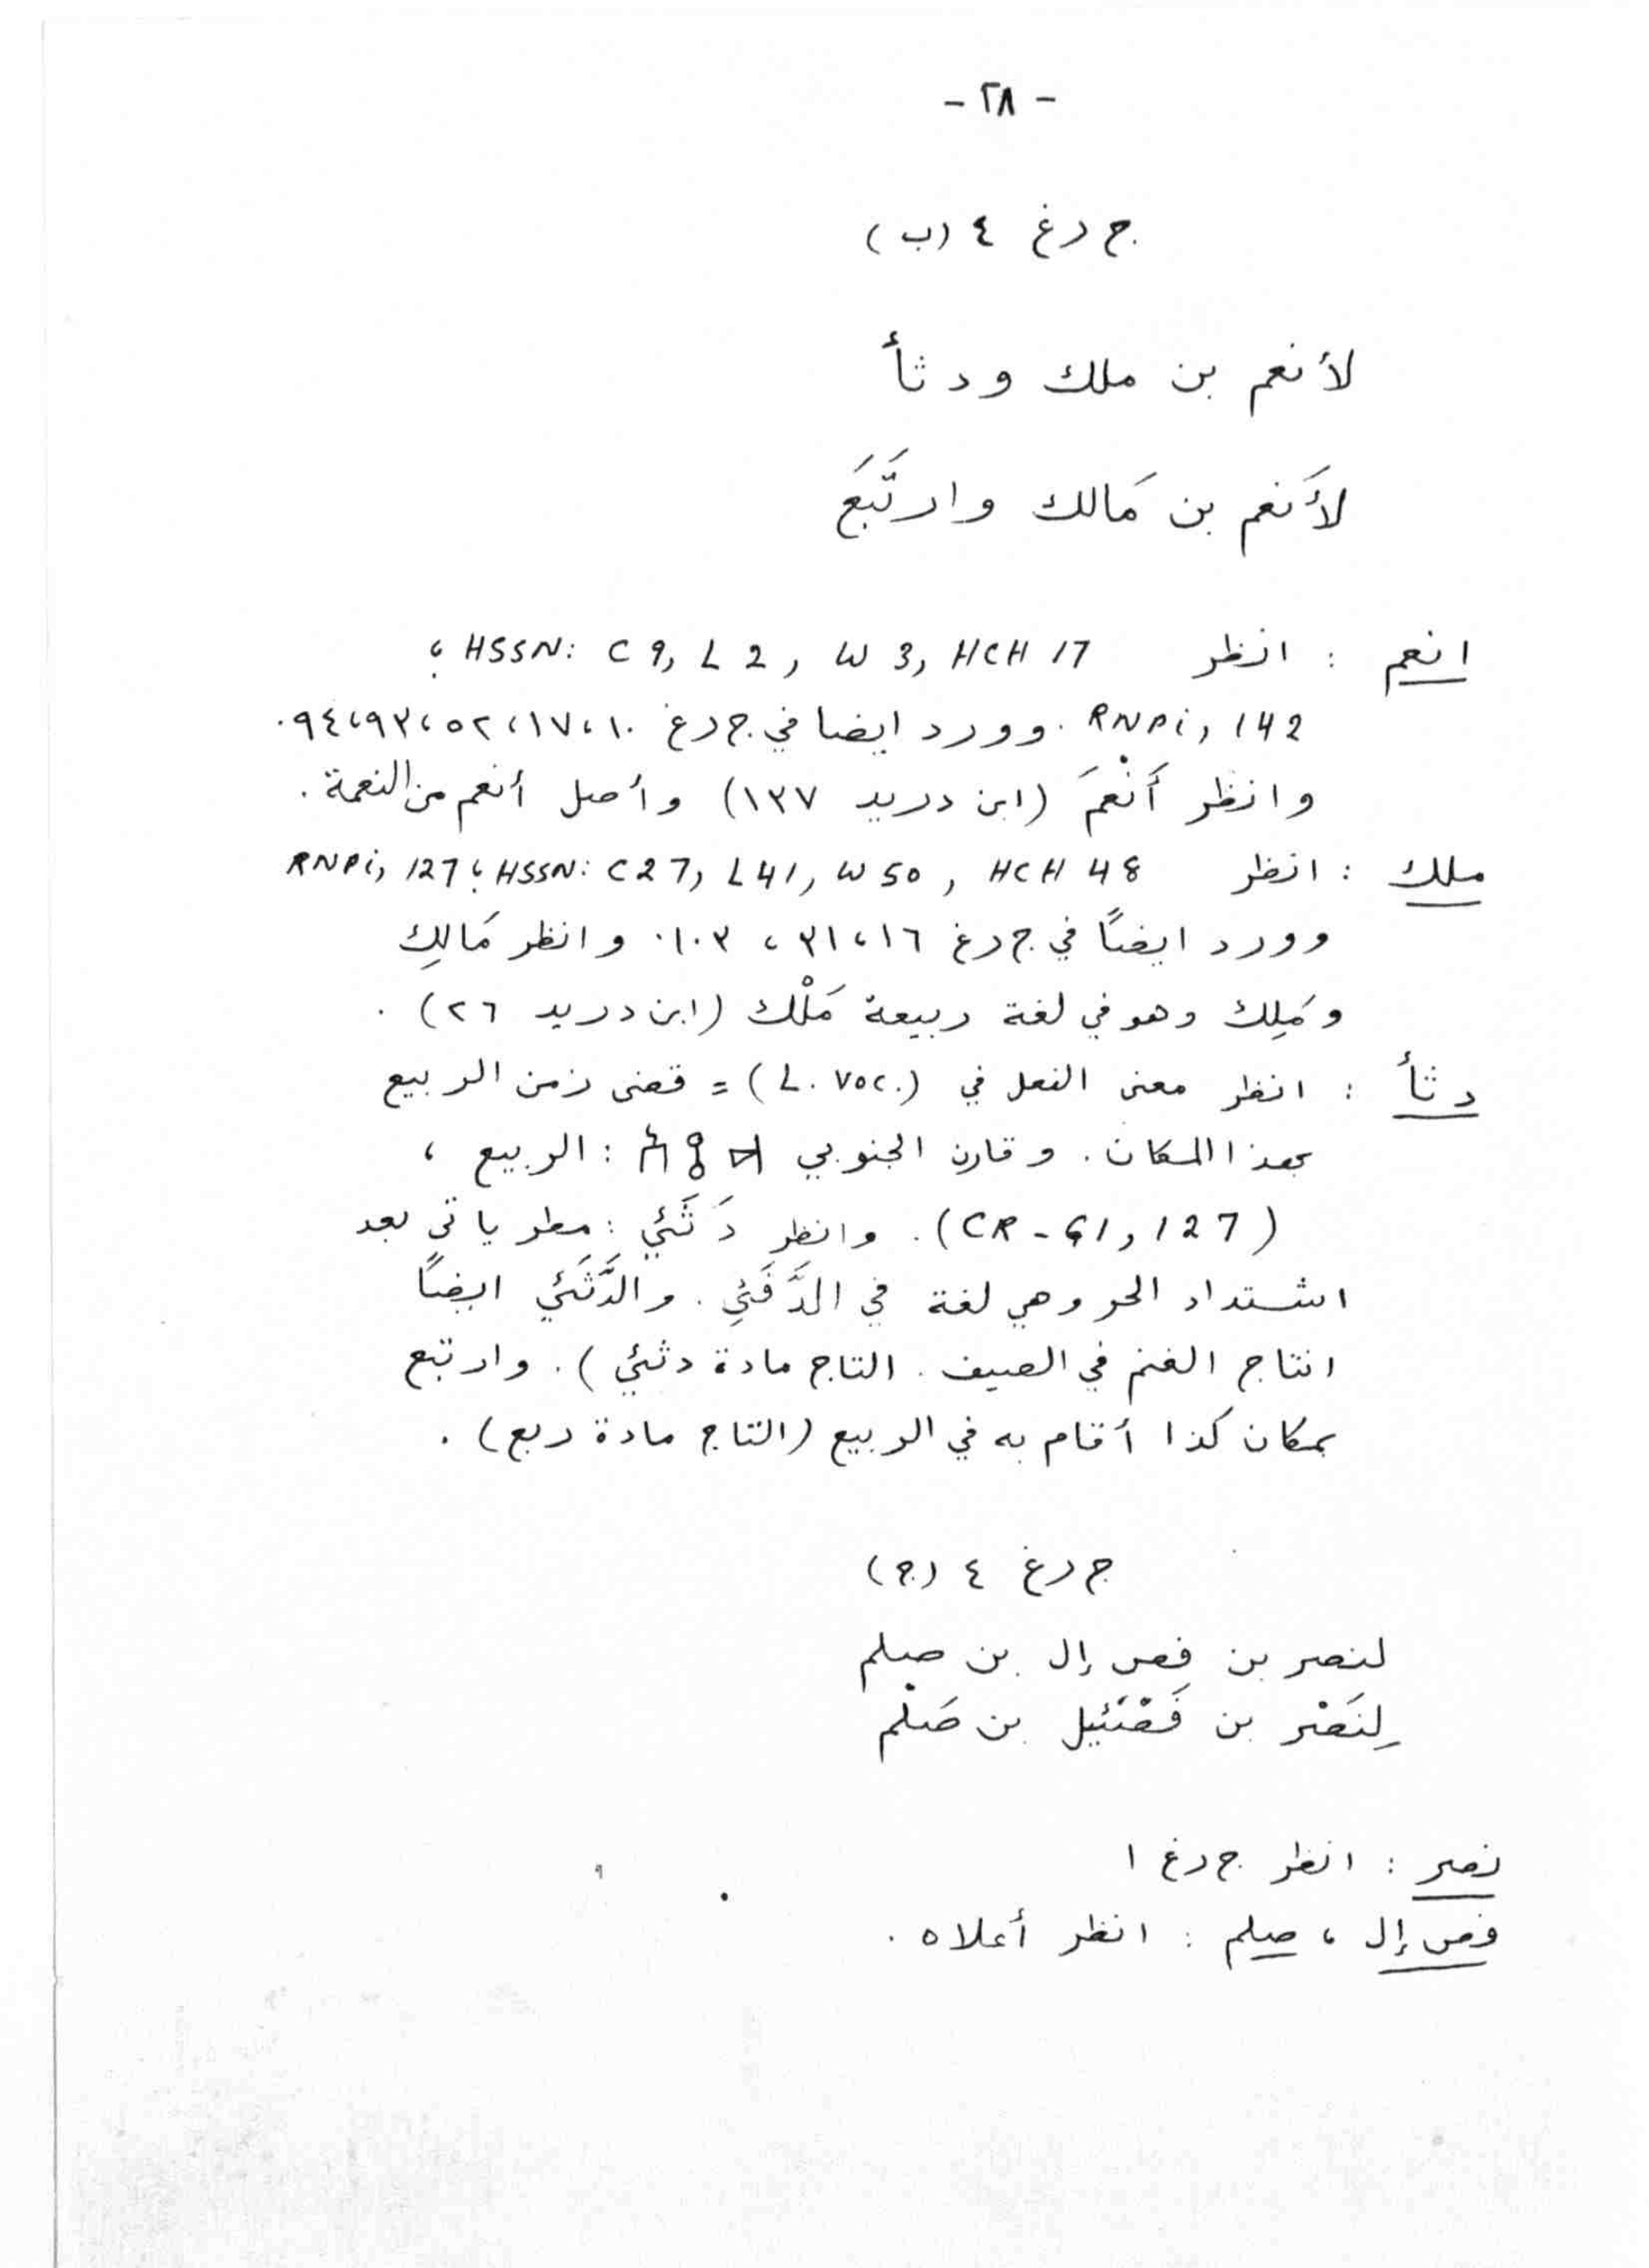 - ٢٨ -
ج د غ ٤ (ب)
لأنعم بن ملك ودثأ
لأَنعم بن مَالك وارتَّبَعَ
انعم : انظر HSSN: C 9, L 2, W 3, HCH 17 ؛
RNPi, 142 . وورد ايضا في ج د غ ١٠، ١٧، ٥٢، ٩٣، ٩٤.
وانظر أَنْعَمَ (ابن دريد ١٣٧) وأصل أنعم من النعمة .
ملك : انظر HSSN: C27, L41, W50, HCH 48 ؛ RNPi, 127
وورد ايضاً في ج د غ ١٦، ٣١، ١٠٣. وانظر مَالِك
ومَلِك وهو في لغة ربيعة مَلْك (ابن دريد ٢٦) .
دثأ : انظر معنى الفعل في (L. Voc.) = قضى زمن الربيع
بهذا المكان . وقارن الجنوبي 𐩵𐩻𐩱 : الربيع ،
(CR - 61, 127) . وانظر دَثَئي : مطر يأتي بعد
اشتداد الحر وهي لغة في الدَّفَئي . والدَّثَئي ايضاً
انتاج الغنم في الصيف . التاج مادة دثئي ) . وارتبع
بمكان كذا أقام به في الربيع (التاج مادة ربع) .
ج د غ ٤ (ج)
لنصر بن فصإل بن صلم
لِنَصْر بن فَصْئيل بن صَلْم
نصر : انظر ج د غ ١
فصإل ، صلم : انظر أعلاه .